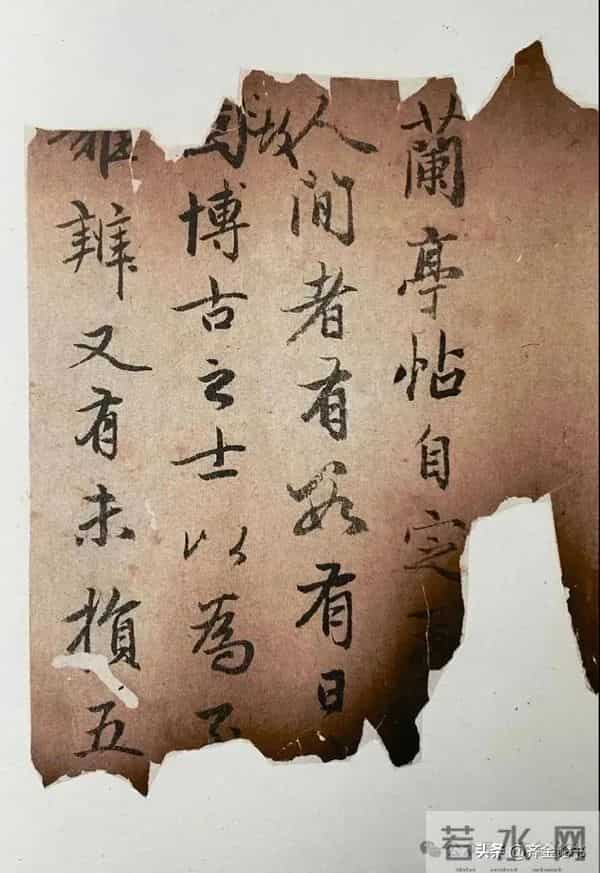 蘭亭帖自定
人間者有數有日
故博古之士以為
難辨又有未損五
若水网
头条 @齐金